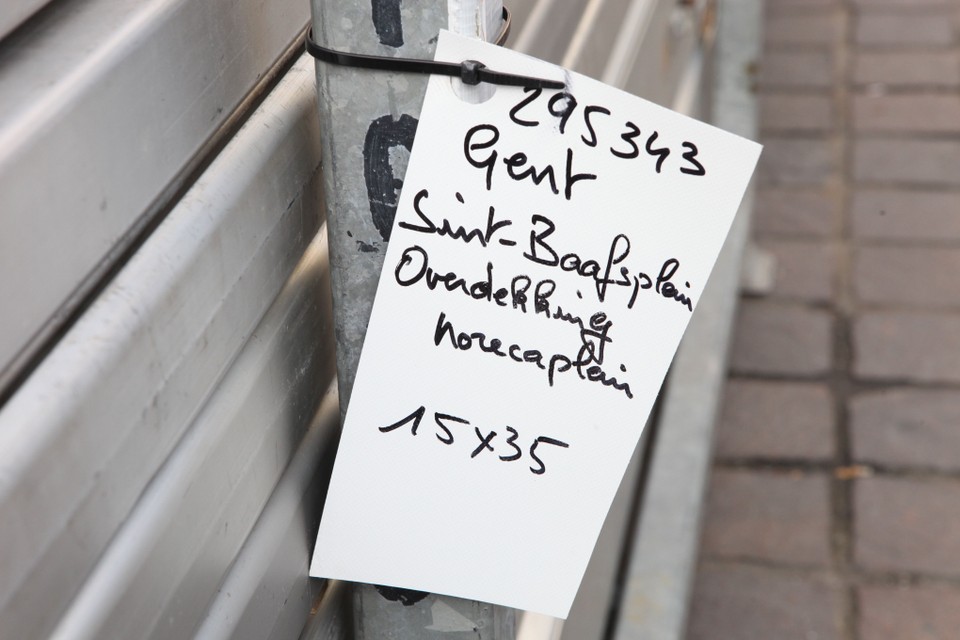 295343
Gent
Sint-Baafsplein
Overdekking
horecaplein
15x35